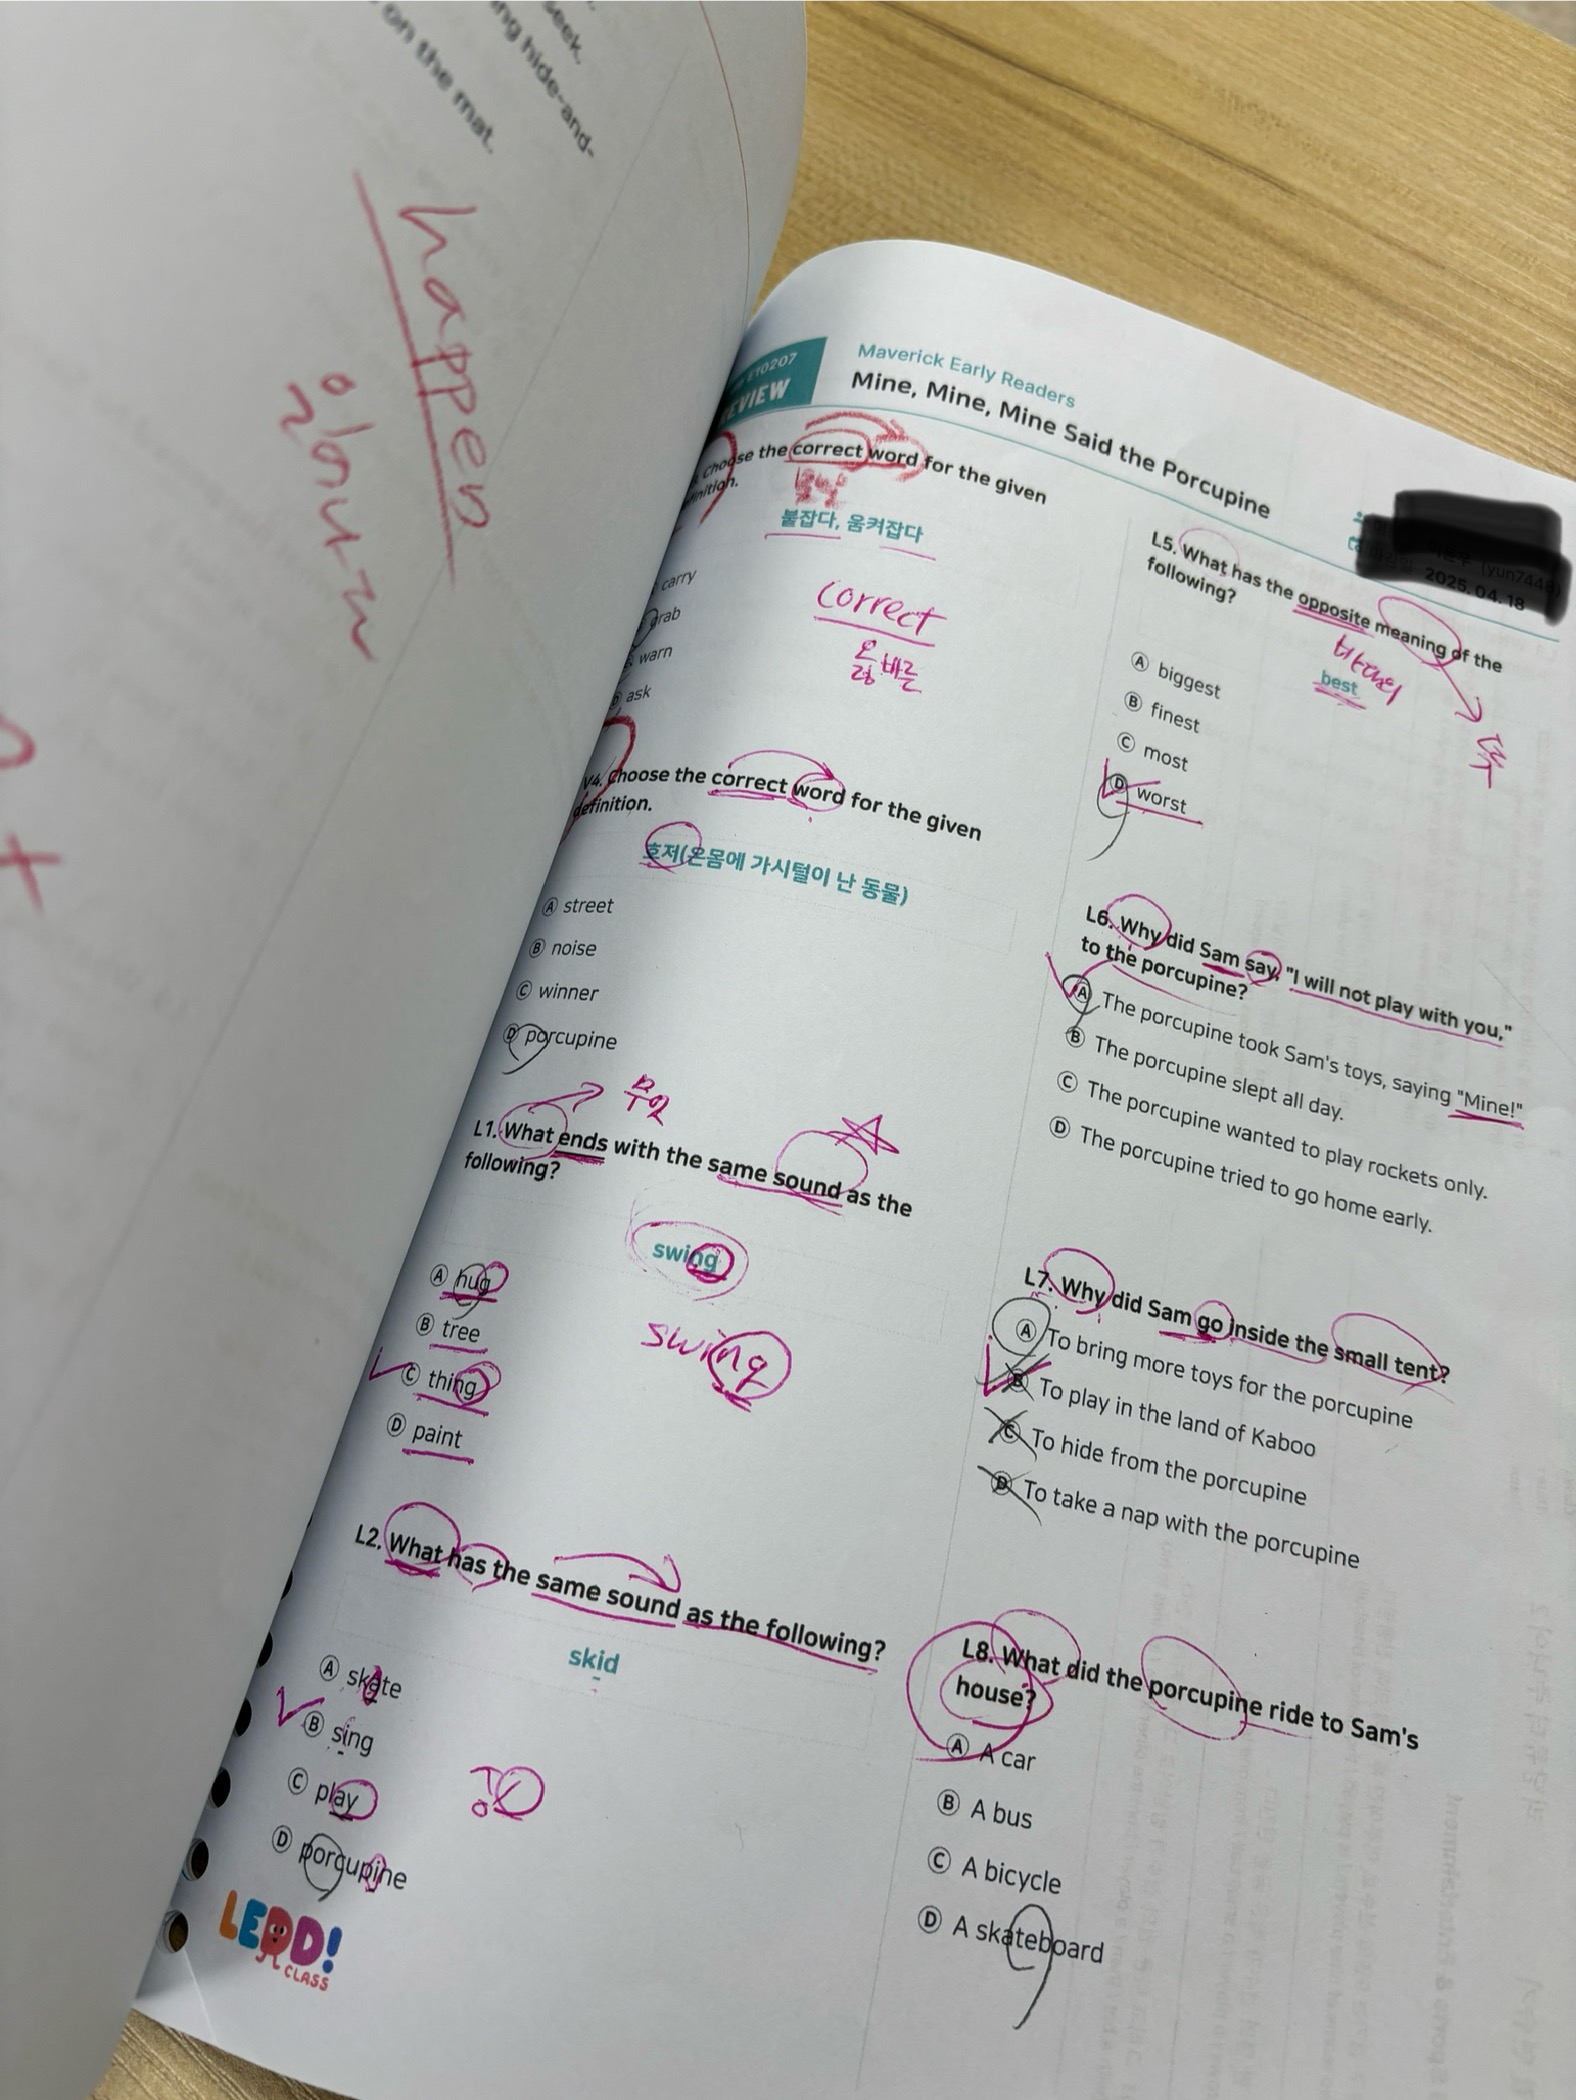 seek.
ng hide-and-
on the mat.
happen
일어나다
E10207
REVIEW
Maverick Early Readers
Mine, Mine, Mine Said the Porcupine
2025. 04. 18
Choose the correct word for the given
definition.
붙잡다, 움켜잡다
carry
grab
warn
ask
correct
올바른
V4. Choose the correct word for the given
definition.
호저(온몸에 가시털이 난 동물)
A street
B noise
C winner
D porcupine
무엇
L1. What ends with the same sound as the
following?
swing
A hug
B tree
C thing
D paint
swing
L2. What has the same sound as the following?
skid
A skate
B sing
C play
D porcupine
LEDD!
CLASS
L5. What has the opposite meaning of the
following?
반대의
best
뜻
A biggest
B finest
C most
D worst
L6. Why did Sam say, "I will not play with you,"
to the porcupine?
A The porcupine took Sam's toys, saying "Mine!"
B The porcupine slept all day.
C The porcupine wanted to play rockets only.
D The porcupine tried to go home early.
L7. Why did Sam go inside the small tent?
A To bring more toys for the porcupine
B To play in the land of Kaboo
C To hide from the porcupine
D To take a nap with the porcupine
L8. What did the porcupine ride to Sam's
house?
A A car
B A bus
C A bicycle
D A skateboard